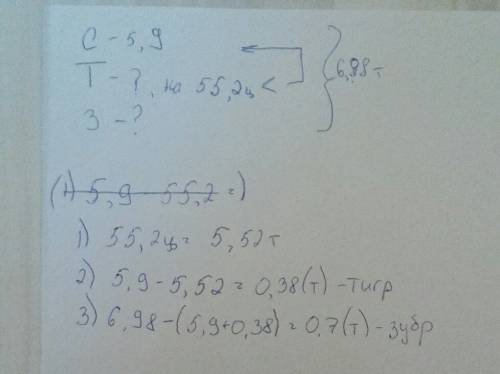 С – 5,9
Т – ?, на 55,2ц <
З – ?
6,98т
(1) 5,9 - 55,2 = )
1) 55,2ц = 5,52т
2) 5,9 – 5,52 = 0,38(т) – тигр
3) 6,98 – (5,9+0,38) = 0,7(т) – зубр